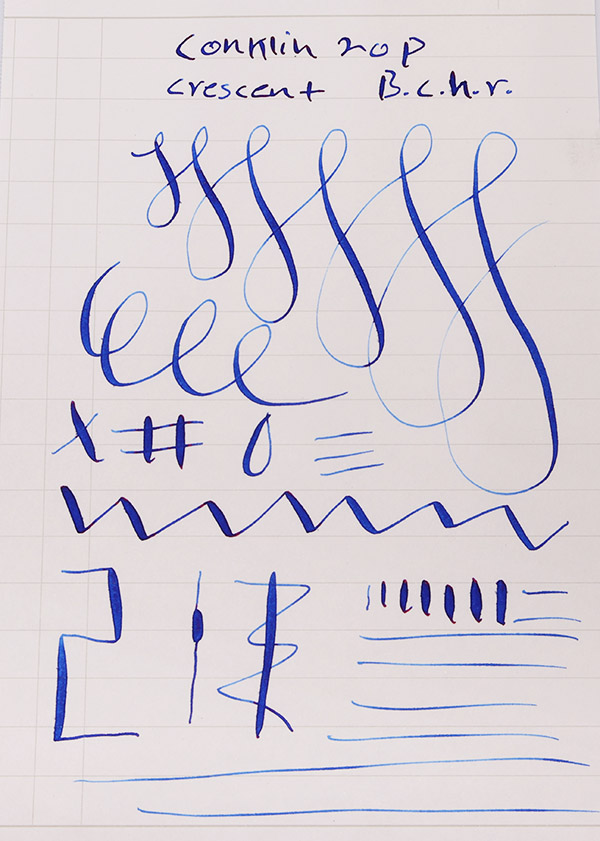 Conklin 20P
Crescent B.C.H.R.